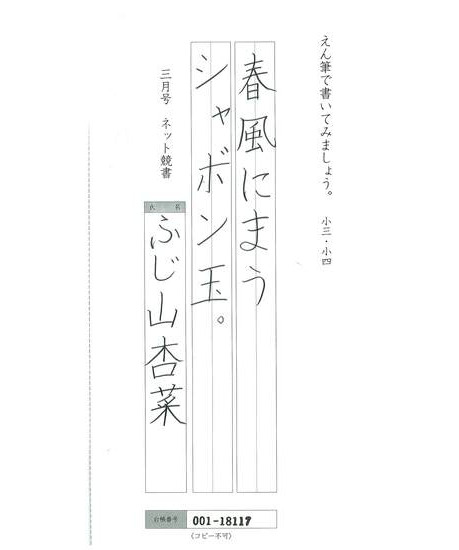 えん筆で書いてみましょう。 小三・小四
春風にまう
シャボン玉。
三月号 ネット競書
氏名
ふじ山杏菜
台帳番号 001-18117
(コピー不可)